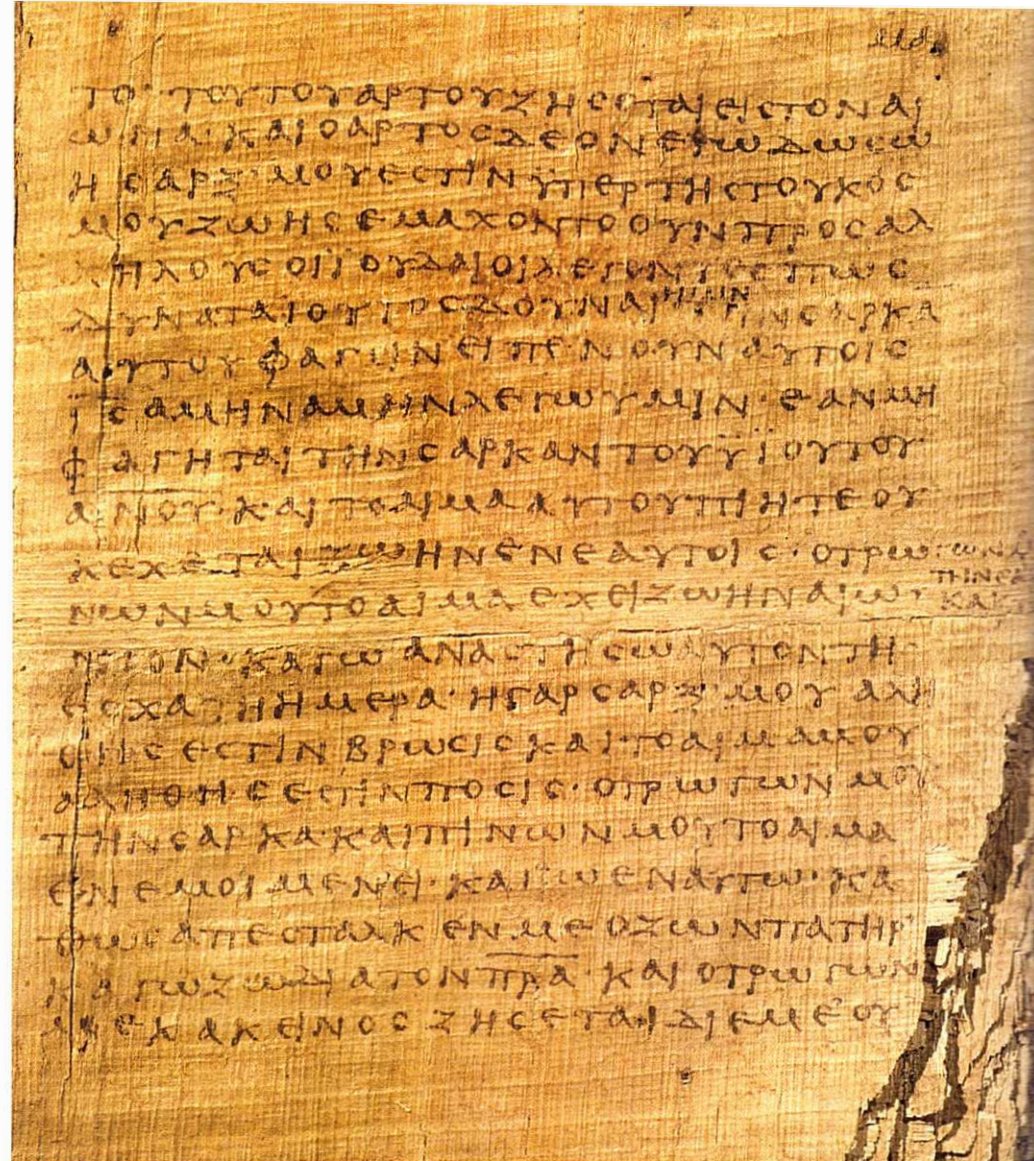 μδ
το· τουτουαρτουζησεταιειςτοναι
ωνα· καιοαρτοςδεονεγωδωσω
ησαρξ·μουεστινϋπερτηςτουκοσ
μουζωηςεμαχοντοουνπροςαλ
ληλουςοιϊουδαιοιλεγοντεςπως
δυναταιουτοςδουναιημιντηνσαρκα
αυτουφαγινειπενουναυτοις
ι̅ς̅αμηναμηνλεγωυμιν·εανμη
φαγηταιτηνσαρκαντουϋϊουτου
α̅ν̅ο̅υ̅·καιτοαιμααυτουπιητεου
κεχεταιζωηνενεαυτοις·οτρω
νωνμουτοαιμαεχειζωηναιω
νιον·καγωαναστησωαυτοντη
εσχατηημερα·ηγαρσαρξ·μουαλη
θηςεστινβρωσιςκαι·τοαιμαμου
αληθηςεστινποσις·οτρωγωνμου
τηνσαρκα·καιπινωνμουτοαιμα
ενεμοιμενει·καγωεναυτω·κα
θωςαπεσταλκενμεοζωνπατηρ
καγωζωδιατονπ̅ρ̅α̅·καιοτρωγων
μεκακεινοςζησεταιδιεμεου